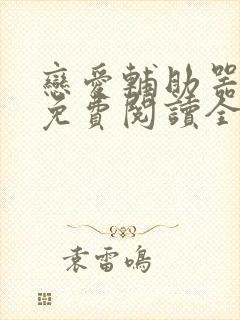 戀愛輔助器
免費閱讀全
袁雷鳴